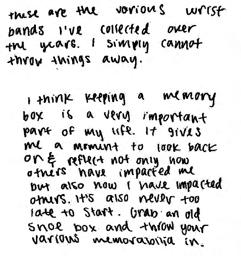 these are the various wrist
bands I've collected over
the years. I simply cannot
throw things away.
I think keeping a memory
box is a very important
part of my life. It gives
me a moment to look back
on & reflect not only how
others have impacted me
but also how I have impacted
others. It's also never too
late to start. Grab an old
shoe box and throw your
various memorabilia in.